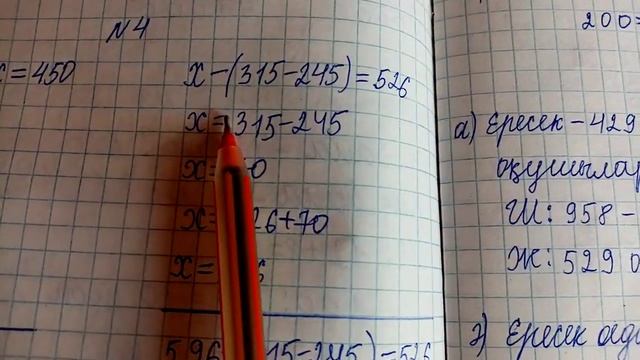 N4
x = 450
x - (315 - 245) = 526
x = 315 - 245
x =
x = 26 + 70
x =
596 15 - 245) = 526
200
а) Ересек - 429
оқушылар
Ш: 958 -
Ж: 529 0
Ересек